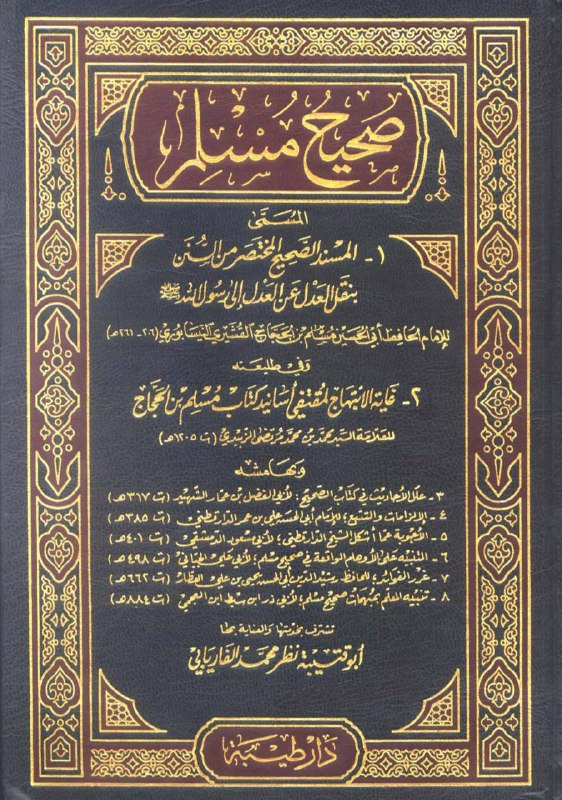 صَحِيحُ مُسْلِم
المُسَمَّى
١- المسند الصحيح المختصر من السُّنَن
بنقل العدل عن العدل إلى رسول الله ﷺ
للإمام الحافظ أبي الحسين مسلم بن الحجاج القشيري النيسابوري (٢٠٦-٢٦١هـ)
وفي طليعته
٢- غاية الابتهاج لمقتفي أسانيد كتاب مسلم بن الحجاج
للعلامة السيد محمد بن محمد مرتضى الزبيدي (ت ١٢٠٥هـ)
وبهامشه
٣- علل الأحاديث في كتاب الصحيح: لأبي الفضل بن عمار الشهيد (ت ٣١٧هـ)
٤- الإلزامات والتتبع؛ للإمام أبي الحسن علي بن عمر الدارقطني (ت ٣٨٥هـ)
٥- الأجوبة عما أشكل الشيخ الدارقطني؛ لأبي مسعود الدمشقي (ت ٤٠١هـ)
٦- التنبيه على الأوهام الواقعة في صحيح مسلم؛ لأبي علي الجياني (ت ٤٩٨هـ)
٧- غرر الفوائد؛ للحافظ رشيد الدين أبي الحسين يحيى بن علي العطار (ت ٦٦٢هـ)
٨- تنبيه المعلم بمبهمات صحيح مسلم؛ لأبي ذر ابن سبط ابن العجمي (ت ٨٨٤هـ)
تشرف بخدمتها والعناية بها
أبو قتيبة نظر محمد الفاريابي
دار طيبة